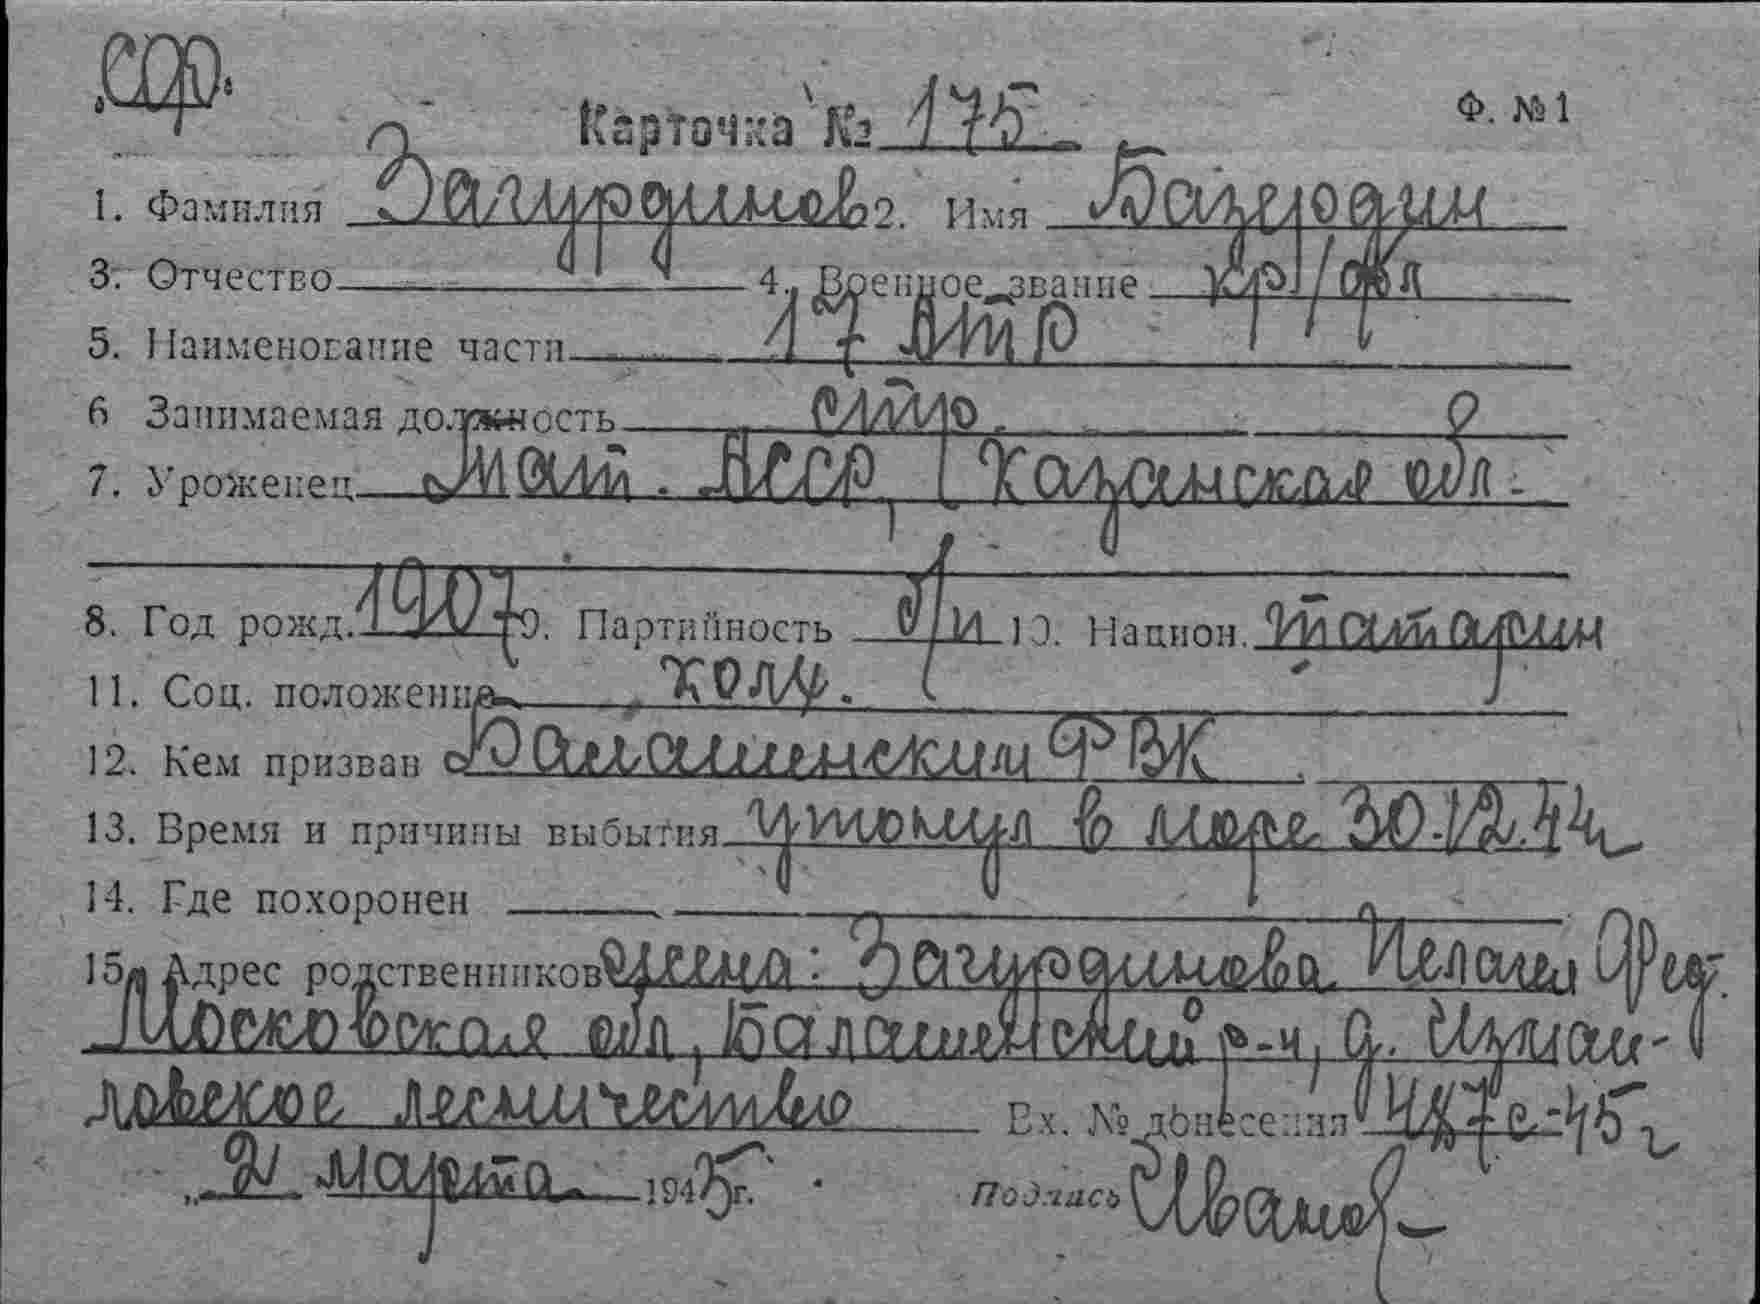 Карточка № 175 Ф. № 1
1. Фамилия Загирдинов 2. Имя Базердин
3. Отчество 4. Военное звание кр/фл
5. Наименование части
6 Занимаемая должность
7. Уроженец Тат. АССР, Казанская обл.
8. Год рожд. 1907 9. Партийность 10. Национ. татарин
11. Соц. положение
12. Кем призван Балашинским РВК
13. Время и причины выбытия утонул в море 30.12.44г
14. Где похоронен
15. Адрес родственников жена: Загирдинова Пелагея Фед.
Московская обл, Балашинский р-н, д. Измай-
ловское лесничество Вх. № донесения 487с-45г
„2" марта 1945г. Подпись Иванов